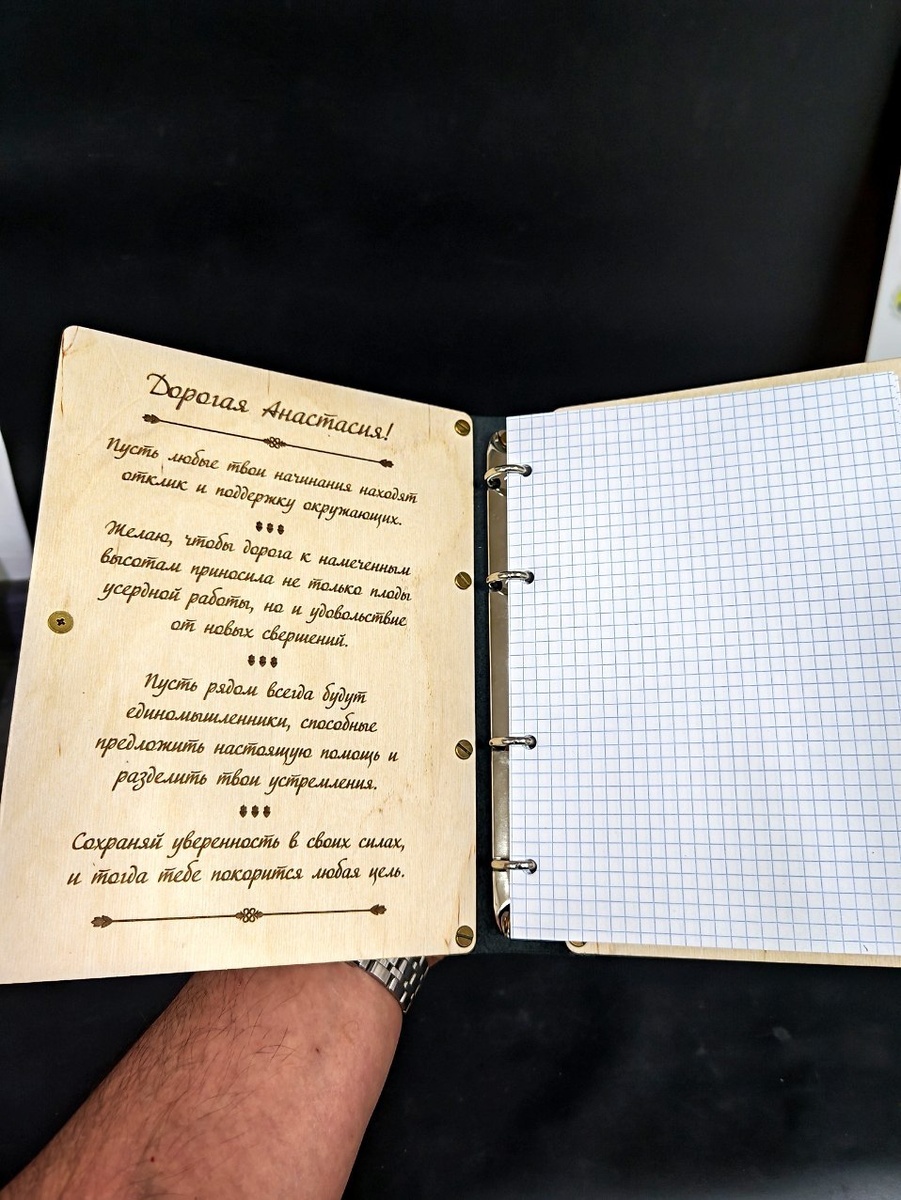 Дорогая Анастасия!
Пусть любые твои начинания находят
отклик и поддержку окружающих.
Желаю, чтобы дорога к намеченным
высотам приносила не только плоды
усердной работы, но и удовольствие
от новых свершений.
Пусть рядом всегда будут
единомышленники, способные
предложить настоящую помощь и
разделить твои устремления.
Сохраняй уверенность в своих силах,
и тогда тебе покорится любая цель.